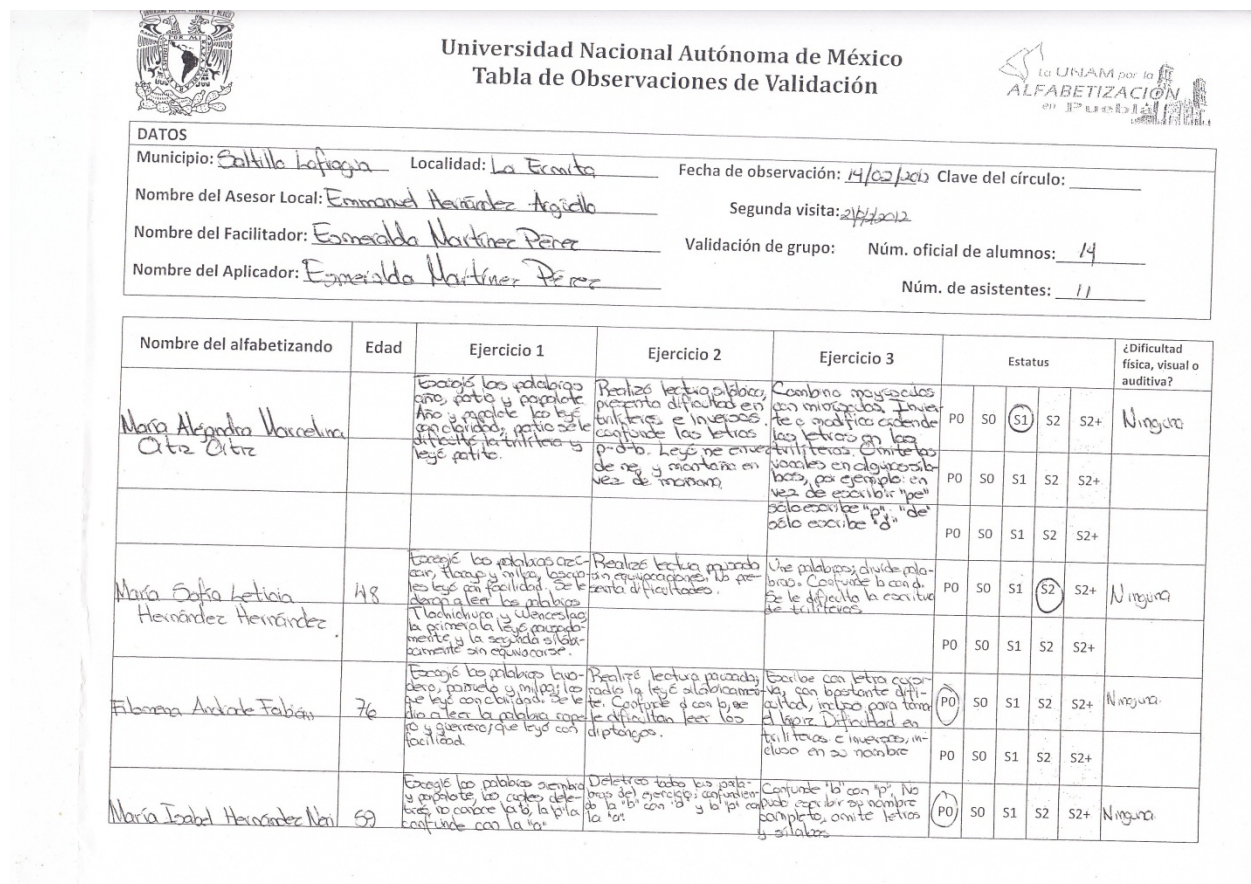 Universidad Nacional Autónoma de México
Tabla de Observaciones de Validación
La UNAM por la
ALFABETIZACIÓN
en Puebla
DATOS
Municipio: Saltillo Lafragua Localidad: La Ermita Fecha de observación: 14/02/2012 Clave del círculo:
Nombre del Asesor Local: Emmanuel Hernández Argüello Segunda visita: 2012
Nombre del Facilitador: Esmeralda Martínez Pérez Validación de grupo: Núm. oficial de alumnos: 14
Nombre del Aplicador: Esmeralda Martínez Pérez Núm. de asistentes: 11
Nombre del alfabetizando Edad Ejercicio 1 Ejercicio 2 Ejercicio 3 Estatus ¿Dificultad física, visual o auditiva?
María Alejandra Marcelina
Otiz Oitiz
Escogió las palabras
año, patio y papalote
Año y papalote los leyó
con claridad, patio se le
dificultó la trilítera y
leyó patito.
Realizó lectura silábica,
presenta dificultad en
trilíteras e inversas.
confunde las letras
p-d-b. Leyó ne en vez
de ne, y montaña en
vez de mañana
Combina mayúsculas
con minúsculas. Invier-
te o modifica
las letras en las
trilíteras. Omite las
vocales en algunas síla-
bas, por ejemplo: en
vez de escribir "pe"
sólo escribe "p", "de"
sólo escribe "d"
P0 S0 S1 S2 S2+
Ninguna
P0 S0 S1 S2 S2+
P0 S0 S1 S2 S2+
María Sofía Leticia
Hernández Hernández
48
Escogió las palabras
y milpa, las cua-
les leyó con facilidad. Se le
dieron a leer las palabras
Tlachichuca y Wenceslao,
la primera la leyó pausada-
mente y la segunda silábi-
camente sin equivocarse.
Realizó lectura pausada
sin equivocaciones. No pre-
senta dificultades.
Une palabras, divide pala-
bras. Confunde b con d.
Se le dificulta la escritura
de trilíteras
P0 S0 S1 S2 S2+
Ninguna
P0 S0 S1 S2 S2+
Filomena Andrade Fabián
76
Escogió las palabras
pañuelo y milpas, las
que leyó con claridad. Se le
dio a leer la palabra rope
ro y guerrero, que leyó con
facilidad
Realizó lectura pausada,
radio la leyó silábicamen-
te. Confunde d con b, se
le dificultan leer los
diptongos.
Escribe con letra cursi-
va, con bastante difi-
cultad, incluso para tomar
el lápiz. Dificultad en
trilíteras e inversas, in-
cluso en su nombre
P0 S0 S1 S2 S2+
Ninguna
P0 S0 S1 S2 S2+
María Isabel Hernández Neri
59
Escogió las palabras siembra
y papalote, las cuales dele-
treó, no conoce la b, la p la
confunde con la "a"
Deletreó todas las pala-
bras del ejercicio, confundien-
do la "b" con "d" y la "p" con
la "a"
Confunde "b" con "p". No
pudo escribir su nombre
completo, omite letras
y sílabas
P0 S0 S1 S2 S2+
Ninguna